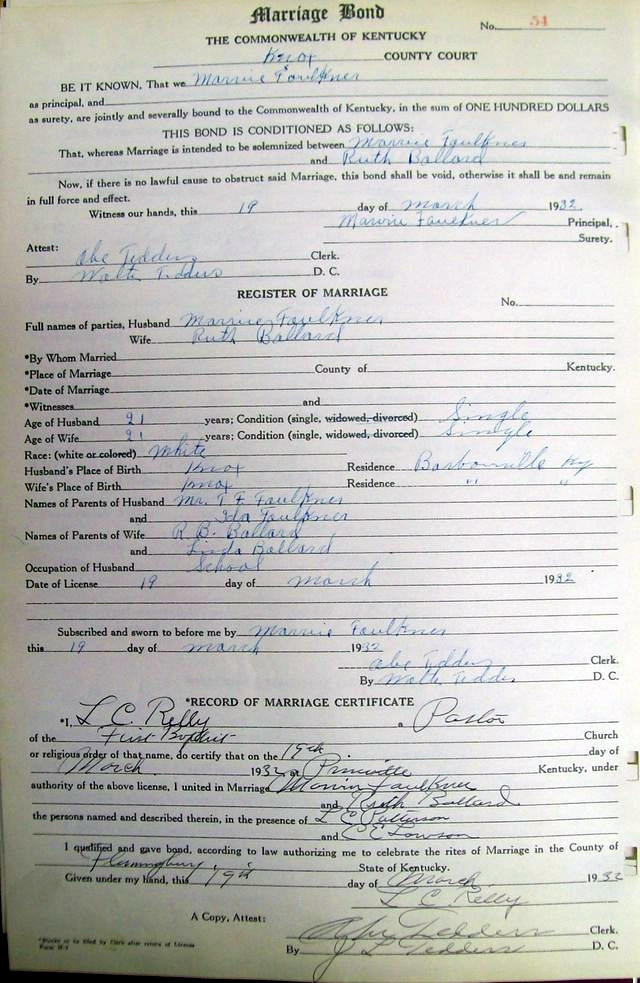 Marriage Bond
No. 54
THE COMMONWEALTH OF KENTUCKY
Knox COUNTY COURT
BE IT KNOWN, That we Marvie Faulkner
as principal, and
as surety, are jointly and severally bound to the Commonwealth of Kentucky, in the sum of ONE HUNDRED DOLLARS
THIS BOND IS CONDITIONED AS FOLLOWS:
That, whereas Marriage is intended to be solemnized between Marvie Faulkner
and Ruth Ballard
Now, if there is no lawful cause to obstruct said Marriage, this bond shall be void, otherwise it shall be and remain
in full force and effect.
Witness our hands, this 19 day of March 1932
Marvin Faulkner Principal,
Surety.
Attest:
Abe Tedders Clerk.
By Walter Tedders D. C.
REGISTER OF MARRIAGE
No.
Full names of parties, Husband Marvie Faulkner
Wife Ruth Ballard
*By Whom Married
*Place of Marriage County of Kentucky.
*Date of Marriage
*Witnesses and
Age of Husband 21 years; Condition (single, widowed, divorced) Single
Age of Wife 21 years; Condition (single, widowed, divorced) Single
Race: (white or colored) White
Husband's Place of Birth Knox Residence Barbourville Ky
Wife's Place of Birth Knox Residence " "
Names of Parents of Husband Mr. T. F. Faulkner
and Ida Faulkner
Names of Parents of Wife R. B. Ballard
and Linda Ballard
Occupation of Husband School
Date of License 19 day of March 1932
Subscribed and sworn to before me by Marvie Faulkner
this 19 day of March 1932
Abe Tedders Clerk.
By Walter Tedders D. C.
*RECORD OF MARRIAGE CERTIFICATE
*I, L. C. Kelly a Pastor
of the First Baptist Church
or religious order of that name, do certify that on the 19th day of
March 1932 at Pineville Kentucky, under
authority of the above license, I united in Marriage Marvin Faulkner
and Ruth Ballard
the persons named and described therein, in the presence of L. C. Patterson
and C E Lawson
I qualified and gave bond, according to law authorizing me to celebrate the rites of Marriage in the County of
Flemingsburg State of Kentucky.
Given under my hand, this 19th day of March 1932
L C Kelly
A Copy, Attest:
Abe Tedders Clerk.
By J L Tedders D. C.
*Blanks to be filled by Clerk after return of License